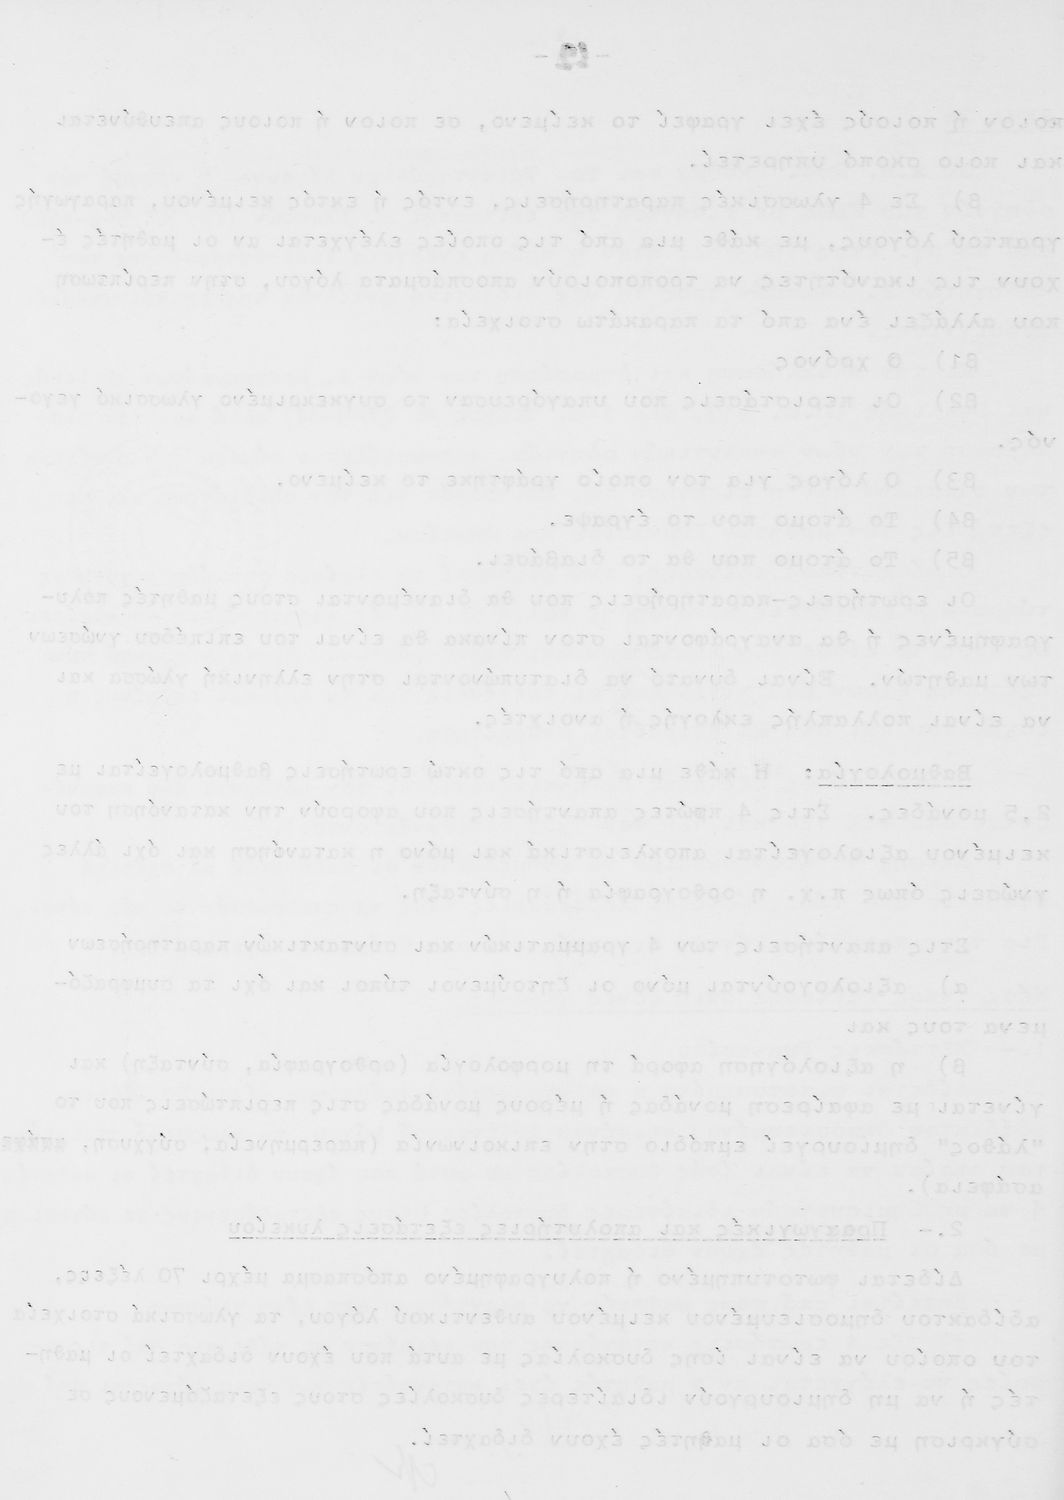 - 12 -
ποιον ή ποιούς έχει γραφεί το κείμενο, σε ποιον ή ποιους απευθύνεται
και ποιο σκοπό υπηρετεί.
β) Σε 4 γλωσσικές παρατηρήσεις, εντός ή εκτός κειμένου, παραγωγής
γραπτού λόγους, με κάθε μια από τις οποίες ελέγχεται αν οι μαθητές έ-
χουν τις ικανότητες να τροποποιούν αποσπάσματα λόγου, στην περίπωση
που αλλάζει ένα από τα παρακάτω στοιχεία:
β1) Ο χρόνος
β2) Οι περιστάσεις που υπαγόρευσαν το συγκεκριμένο γλωσσικό γεγο-
νός.
β3) Ο λόγος για τον οποίο γράφτηκε το κείμενο.
β4) Το άτομο που το έγραψε.
β5) Το άτομο που θα το διαβάσει.
Οι ερωτήσεις-παρατηρήσεις που θα διανέμονται στους μαθητές πολυ-
γραφημένες ή θα αναγράφονται στον πίνακα θα είναι του επιπέδου γνώσεων
των μαθητών. Είναι δυνατό να διατυπώνονται στην ελληνική γλώσσα και
να είναι πολλαπλής εκλογής ή ανοιχτές.
Βαθμολογία: Η κάθε μια από τις οκτώ ερωτήσεις βαθμολογείται με
2,5 μονάδες. Στις 4 πρώτες απαντήσεις που αφορούν την κατανόηση του
κειμένου αξιολογείται αποκλειστικά και μόνο η κατανόηση και όχι άλλες
γνώσεις όπως π.χ. η ορθογραφία ή η σύνταξη.
Στις απαντήσεις των 4 γραμματικών και συντακτικών παρατηρήσεων
α) αξιολογούνται μόνο οι ζητούμενοι τύποι και όχι τα συμφραζό-
μενα τους και
β) η αξιολόγηση αφορά τη μορφολογία (ορθογραφία, σύνταξη) και
γίνεται με αφαίρεση μονάδας ή μέρους μονάδας στις περιπτώσεις που το
"λάθος" δημιουργεί εμπόδιο στην επικοινωνία (παρερμηνεία, σύγχυση,
ασάφεια).
2.- Προαγωγικές και απολυτήριες εξετάσεις λυκείου
Δίδεται φωτοτυπημένο ή πολυγραφημένο απόσπασμα μέχρι 70 λέξεις,
αδίδακτου δημοσιευμένου κειμένου αυθεντικού λόγου, τα γλωσσικά στοιχεία
του οποίου να είναι ίσης δυσκολίας με αυτά που έχουν διδαχτεί οι μαθη-
τές ή να μη δημιουργούν ιδιαίτερες δυσκολίες στους εξεταζόμενους σε
σύγκριση με όσα οι μαθητές έχουν διδαχτεί.